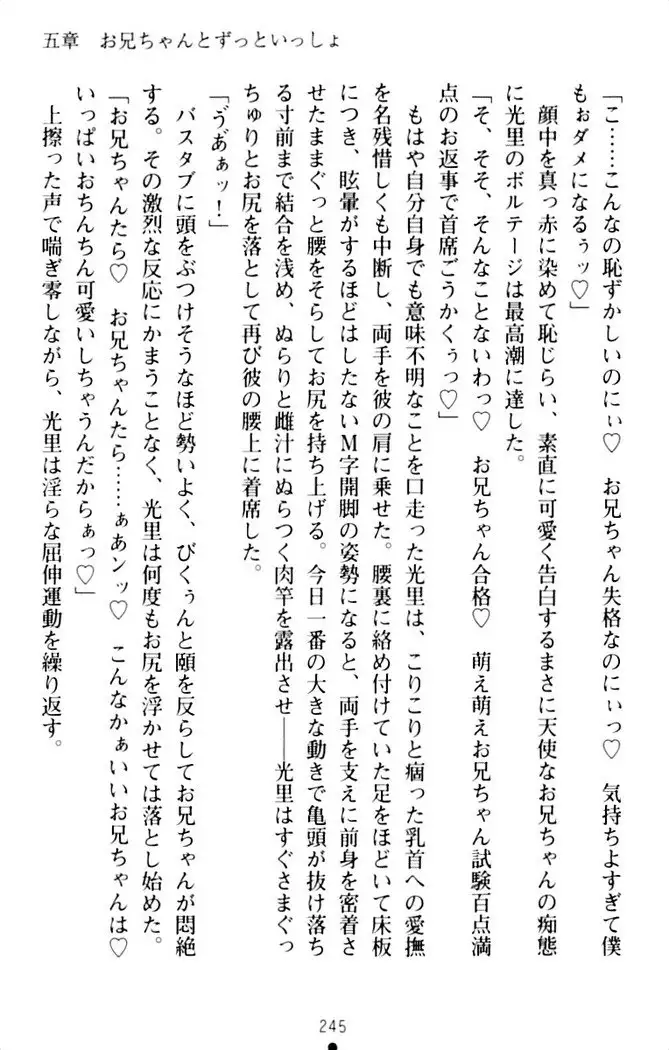 五章　お兄ちゃんとずっといっしょ
「こ……こんなの恥ずかしいのにぃ♡　お兄ちゃん失格なのにぃっ♡　気持ちよすぎて僕
もぉダメになるぅッ♡」
顔中を真っ赤に染めて恥じらい、素直に可愛く告白するまさに天使なお兄ちゃんの痴態
に光里のボルテージは最高潮に達した。
「そ、そそ、そんなことないわっ♡　お兄ちゃん合格♡　萌え萌えお兄ちゃん試験百点満
点のお返事で首席ごうかくぅっ♡」
もはや自分自身でも意味不明なことを口走った光里は、こりこりと痼った乳首への愛撫
を名残惜しくも中断し、両手を彼の肩に乗せた。腰裏に絡め付けていた足をほどいて床板
につき、眩暈がするほどはしたないM字開脚の姿勢になると、両手を支えに前身を密着さ
せたままぐっと腰をそらしてお尻を持ち上げる。今日一番の大きな動きで亀頭が抜け落ち
る寸前まで結合を浅め、ぬらりと雌汁にぬらつく肉竿を露出させ――光里はすぐさまぐっ
ちゅりとお尻を落として再び彼の腰上に着席した。
「ゔぁ゙ぁッ！」
バスタブに頭をぶつけそうなほど勢いよく、びくぅんと頤を反らしてお兄ちゃんが悶絶
する。その激烈な反応にかまうことなく、光里は何度もお尻を浮かせては落とし始めた。
「お兄ちゃんたら♡　お兄ちゃんたら……ぁあンッ♡　こんなかぁいいお兄ちゃんは♡
いっぱいおちんちん可愛いしちゃうんだからぁっ♡」
上擦った声で喘ぎ零しながら、光里は淫らな屈伸運動を繰り返す。
245